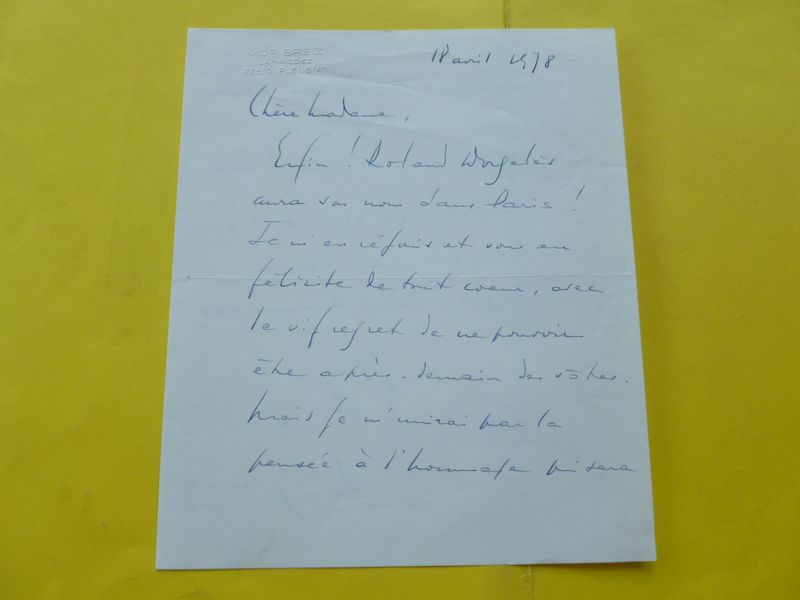 MOR BREIZ
LANMODEZ
22610 PLEUBIAN
18 avril 1978
Chère Madame,
Enfin ! Roland Dorgelès
aura son nom dans Paris !
Je m'en réjouis et vous en
félicite de tout coeur, avec
le vif regret de ne pouvoir
être après-demain des vôtres.
Mais je m'unirai par la
pensée à l'hommage qui sera